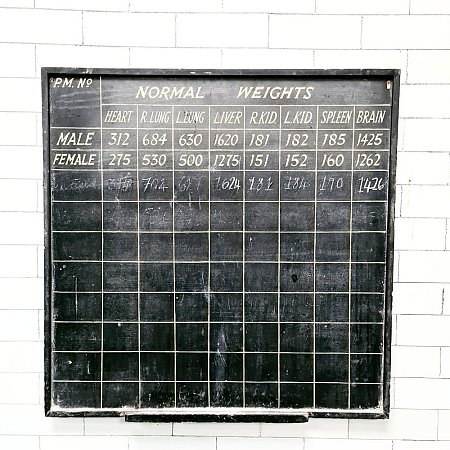 P.M. Nº NORMAL WEIGHTS
HEART R.LUNG L.LUNG LIVER R.KID. L.KID. SPLEEN BRAIN
MALE 312 684 630 1620 181 182 185 1425
FEMALE 275 530 500 1275 151 152 160 1262
704 1624 181 184 190 1426